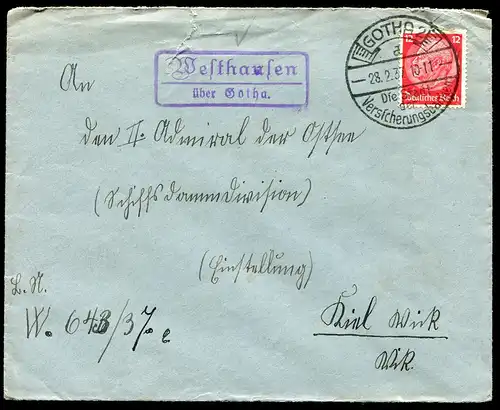 Westhausen
über Gotha.
GOTHA 2
28.2.3 10-11
Die
Versicherungs
12 12
Deutsches Reich
An
den II. Admiral der Ostsee
(Schiffsstammdivision)
(Einstellung)
B. N.
W. 643/37. e
Kiel Wik
Wik.